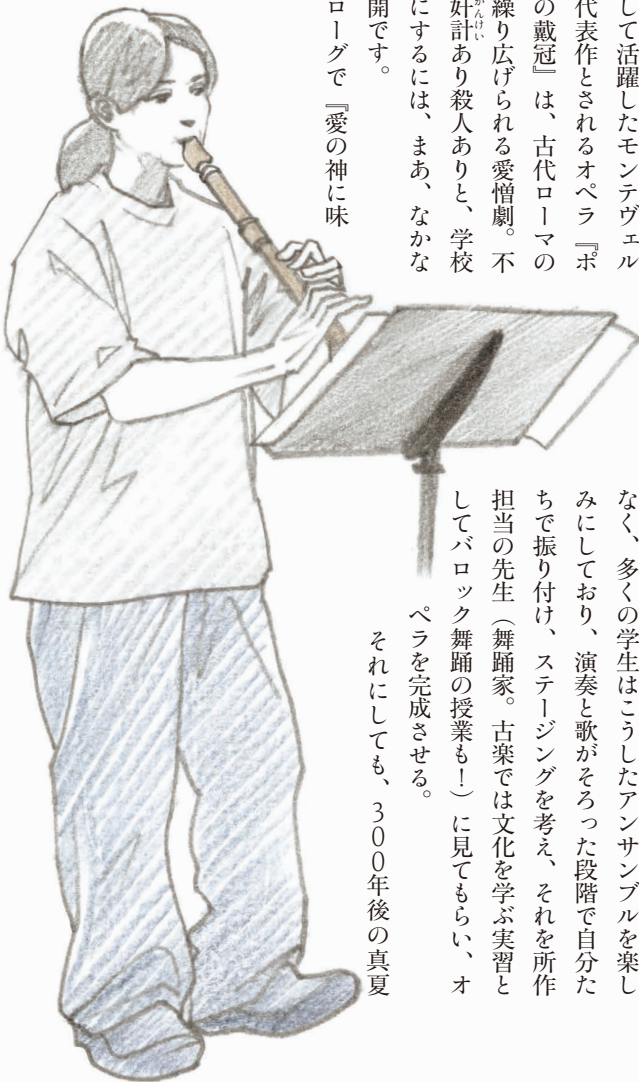 して活躍したモンテヴェル
代表作とされるオペラ『ポ
の戴冠』は、古代ローマの
繰り広げられる愛憎劇。不
かんけい
奸計あり殺人ありと、学校
にするには、まあ、なかな
開です。
ローグで『愛の神に味
なく、多くの学生はこうしたアンサンブルを楽し
みにしており、演奏と歌がそろった段階で自分た
ちで振り付け、ステージングを考え、それを所作
担当の先生（舞踊家。古楽では文化を学ぶ実習と
してバロック舞踊の授業も！）に見てもらい、オ
ペラを完成させる。
それにしても、300年後の真夏